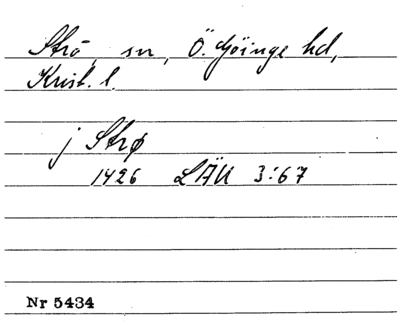 Strö, sn, Ö. Göinge hd,
Krist. l.
j Strø
1426 LÄU 3:67
Nr 5434